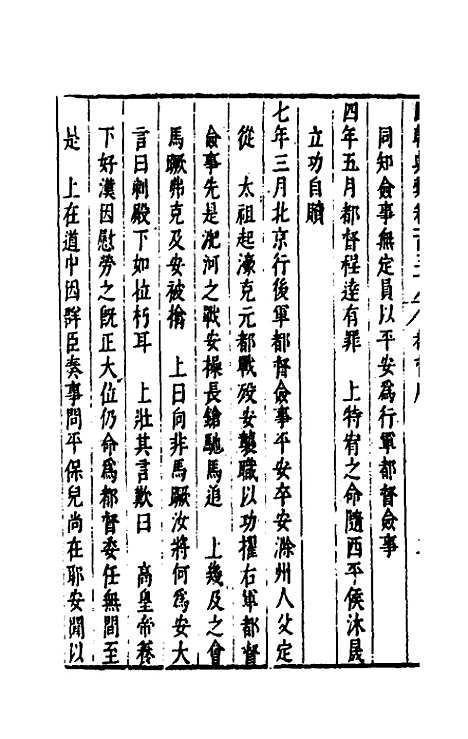 同知僉事無定員以平安爲行軍都督僉事
四年五月都督程達有罪　上特宥之命隨西平侯沐晟
立功自贖
七年三月北京行後軍都督僉事平安卒安滁州人父定
從　太祖起濠克元都戰殁安襲職以功擢右軍都督
僉事先是淝河之戰安操長鎗馳馬追　上幾及之會
馬蹶弗克及安被擒　上曰向非馬蹶汝將何爲安大
言曰刺殿下如拉朽耳　上壯其言歎曰　高皇帝養
下好漢因慰勞之旣正大位仍命爲都督委任無間至
是　上在道中因羣臣奏事問平保兒尚在耶安聞以